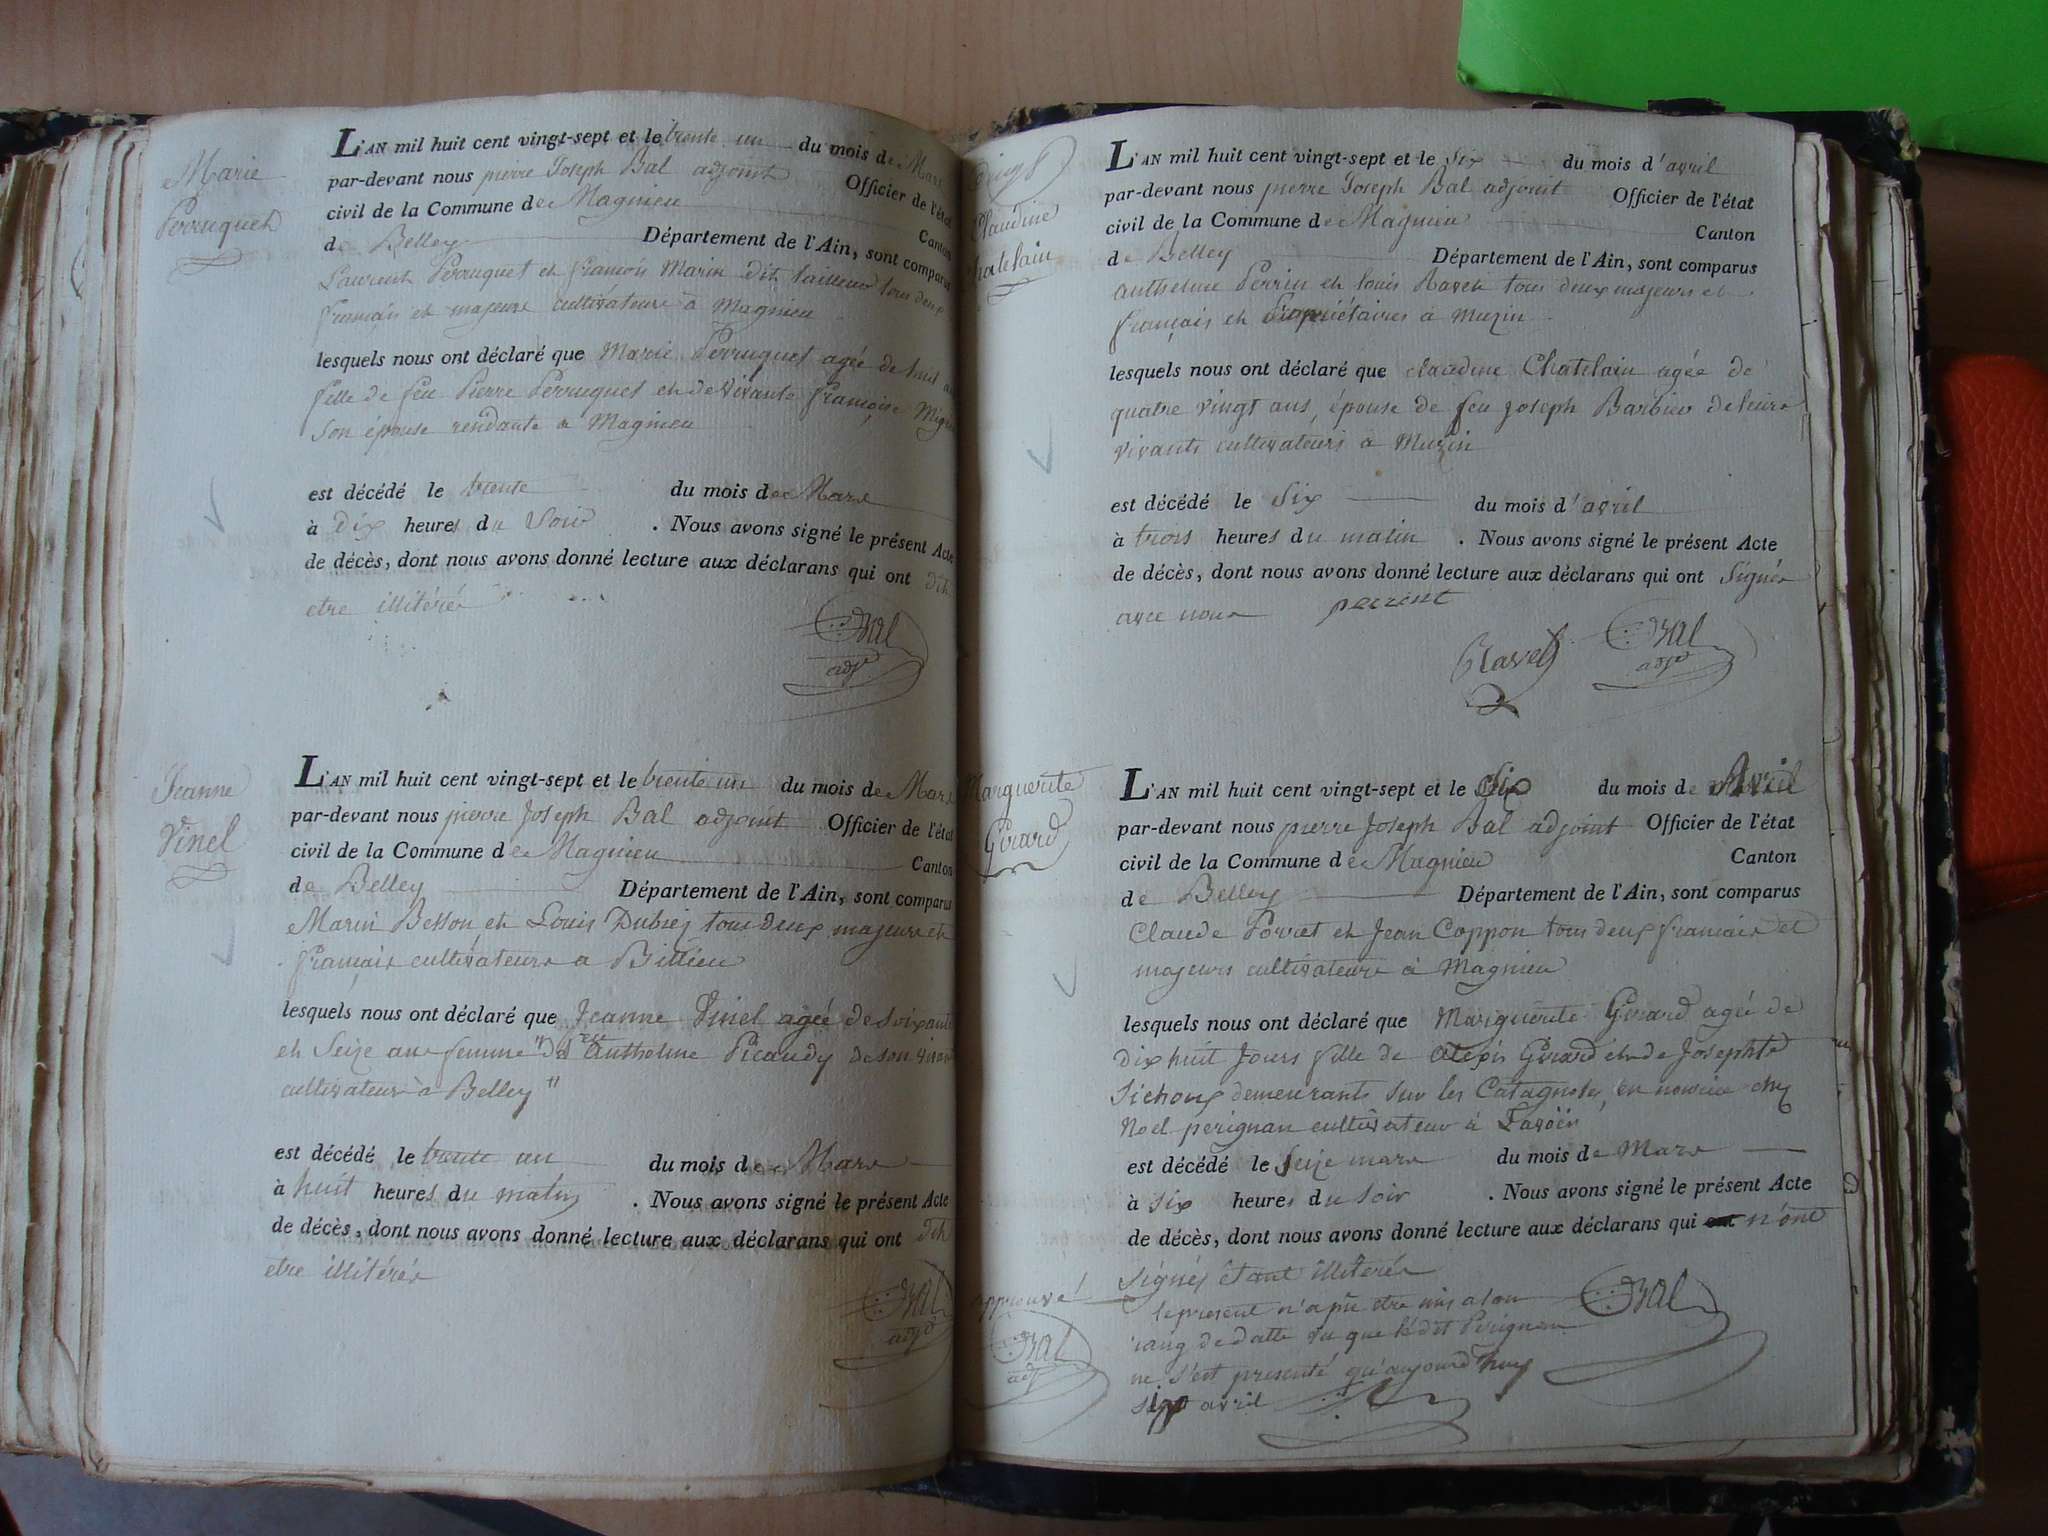 Marie
Perruquet
L'AN mil huit cent vingt-sept et le trente un du mois de Mars
par-devant nous pierre Joseph Bal adjoint Officier de l'état
civil de la Commune de Magnieu Canton
de Belley Département de l'Ain, sont comparus
Laurent Perruquet et françois Marin dit tailleur tous deux
français et majeurs cultivateurs à Magnieu
lesquels nous ont déclaré que Marie Perruquet agée de huit
fille de feu Pierre Perruquet et de vivante françoise
son épouse rendante a Magnieu
est décédé le trente du mois de Mars
à dix heures du Soir . Nous avons signé le présent Acte
de décès, dont nous avons donné lecture aux déclarans qui ont dit
etre illitérés
Bal
adjt
Jeanne
Vinel
L'AN mil huit cent vingt-sept et le trente un du mois de Mars
par-devant nous pierre Joseph Bal adjoint Officier de l'état
civil de la Commune de Magnieu Canton
de Belley Département de l'Ain, sont comparus
Marin Besson et Louis Dubiez tous deux majeurs et
français cultivateurs a Billieu
lesquels nous ont déclaré que Jeanne Vinel agée de soixante
et Seize ans femme Anthelme Picaudy de son vivant
cultivateur à Belley "
est décédé le trente un du mois de Mars
à huit heures du matin . Nous avons signé le présent Acte
de décès, dont nous avons donné lecture aux déclarans qui ont dit
etre illitérés
Bal
adjt
Claudine
Chatelain
L'AN mil huit cent vingt-sept et le Six du mois d'avril
par-devant nous pierre Joseph Bal adjoint Officier de l'état
civil de la Commune de Magnieu Canton
de Belley Département de l'Ain, sont comparus
anthelme Perrin et louis tous deux majeurs et
français et Propriétaires à Muzin
lesquels nous ont déclaré que claudine Chatelain agée de
quatre vingt ans, épouse de feu joseph Barbier de leurs
vivants cultivateurs à Muzin
est décédé le Six du mois d'avril
à trois heures du matin . Nous avons signé le présent Acte
de décès, dont nous avons donné lecture aux déclarans qui ont Signés
avec nous perrint
Bal
adjt
Marguerite
Girard
L'AN mil huit cent vingt-sept et le Six du mois de Avril
par-devant nous pierre Joseph Bal adjoint Officier de l'état
civil de la Commune de Magnieu Canton
de Belley Département de l'Ain, sont comparus
Claude Porret et Jean Coppon tous deux français et
majeurs cultivateurs à Magnieu
lesquels nous ont déclaré que Marguerite Girard agée de
Dix huit Jours fille de alexis Girard et de Josephte
demeurants sur les en nourice chez
Noel perignan cultivateur à
est décédé le Seize mars du mois de Mars
à six heures du soir . Nous avons signé le présent Acte
de décès, dont nous avons donné lecture aux déclarans qui ont n'ont
signés étant illiterés
Bal
approuvé
le present n'a pu etre mis a son
rang de datte vu que ledit Perignan
ne s'est presenté qu'aujourd'huy
avril
Bal
adjt